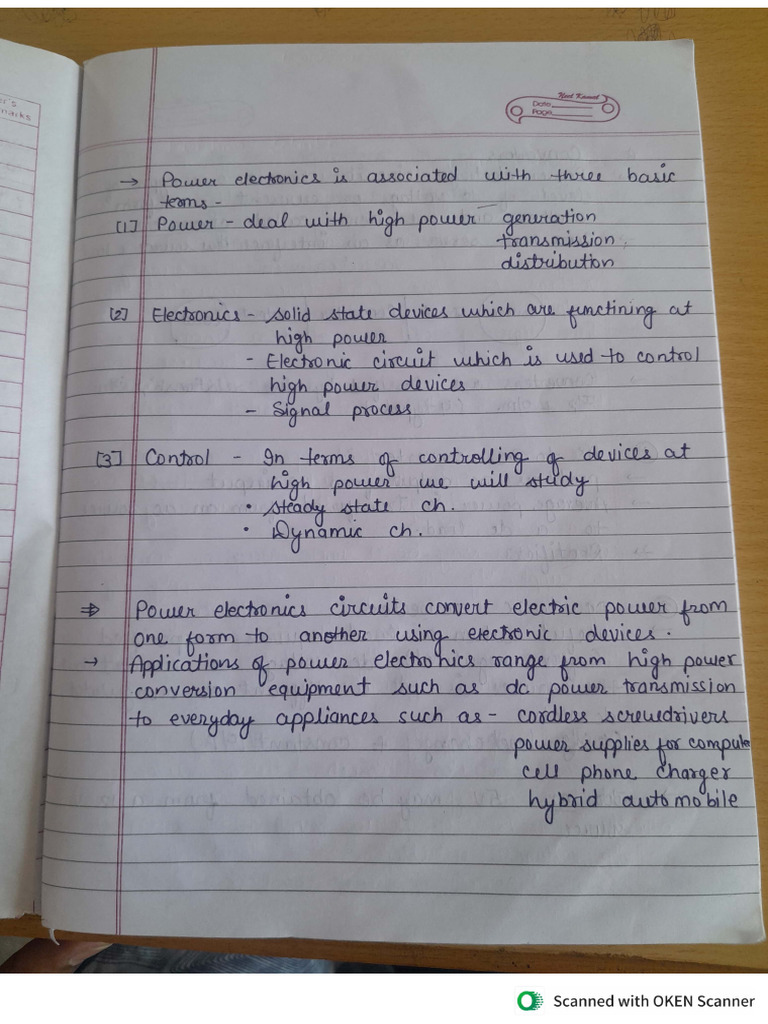 er's
marks
Neel Kamal
Date
Page
→ Power electronics is associated with three basic
terms -
[1] Power - deal with high power - generation
transmission
distribution
[2] Electronics - solid state devices which are functining at
high power
- Electronic circuit which is used to control
high power devices
- Signal process
[3] Control - In terms of controlling of devices at
high power we will study
• steady state ch.
• Dynamic ch.
⇒ Power electronics circuits convert electric power from
one form to another using electronic devices.
→ Applications of power electronics range from high power
conversion equipment such as dc. power transmission
to everyday appliances such as - cordless screwdrivers
power supplies for compute
cell phone charger
hybrid automobile
Scanned with OKEN Scanner